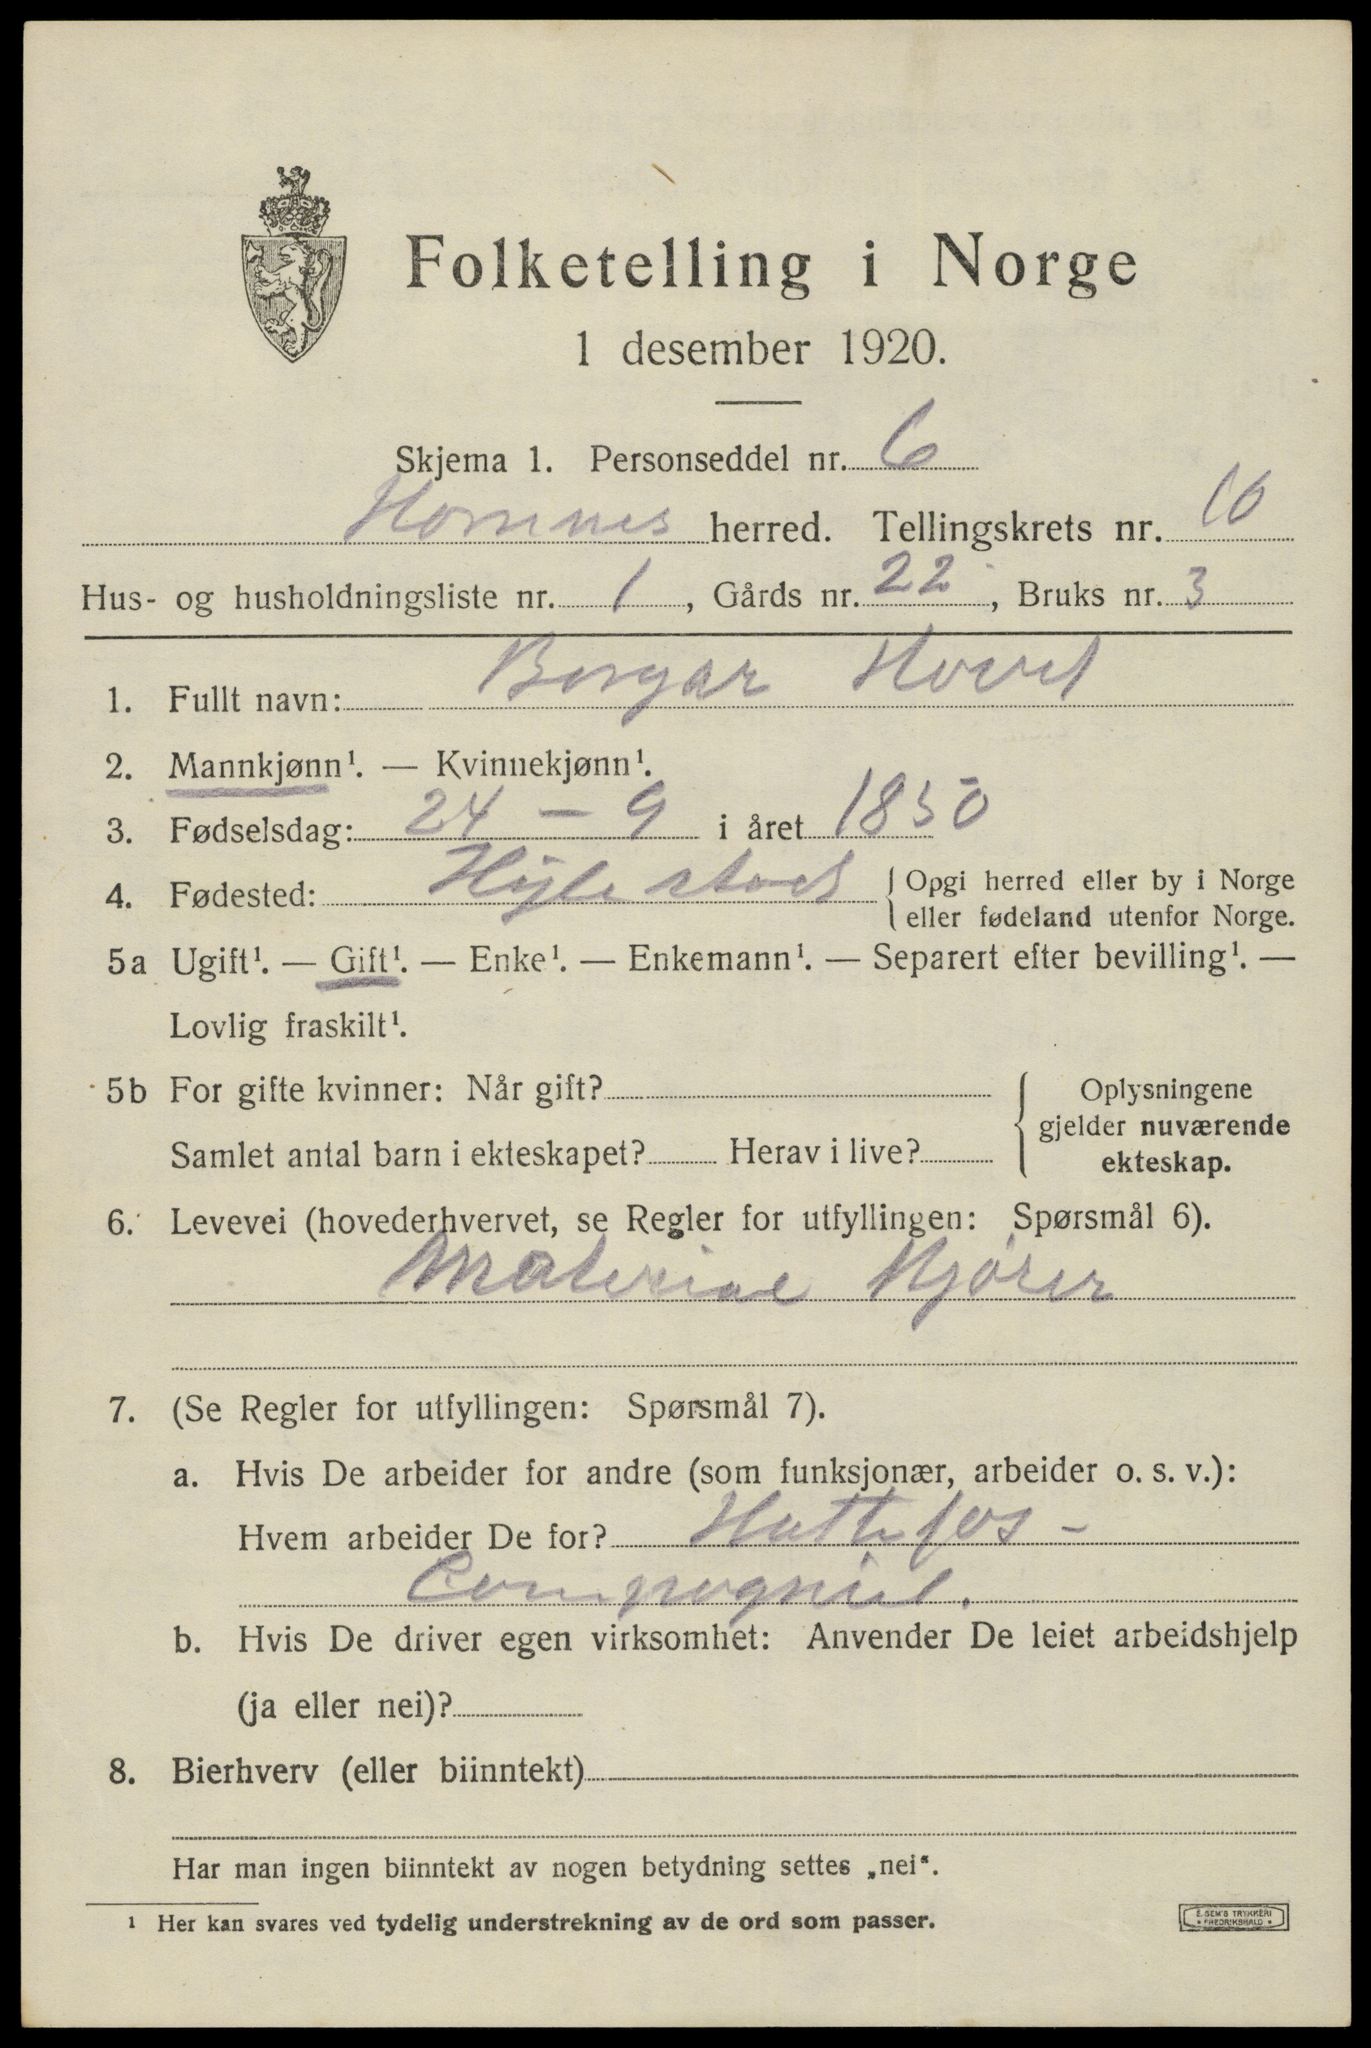 Folketelling i Norge
1 desember 1920.
Skjema 1. Personseddel nr. 6
Hornnes herred. Tellingskrets nr. 10
Hus- og husholdningsliste nr. 1, Gårds nr. 22, Bruks nr. 3
1. Fullt navn: Borgar
2. Mannkjønn¹. — Kvinnekjønn¹.
3. Fødselsdag: 24 – 9 i året 1850
4. Fødested: Hylestad { Opgi herred eller by i Norge
eller fødeland utenfor Norge.
5a Ugift¹. — Gift¹. — Enke¹. — Enkemann¹. — Separert efter bevilling¹. —
Lovlig fraskilt¹.
5b For gifte kvinner: Når gift?
Samlet antal barn i ekteskapet? Herav i live?
{ Oplysningene
gjelder nuværende
ekteskap.
6. Levevei (hovederhvervet, se Regler for utfyllingen: Spørsmål 6).
Material Kjører
7. (Se Regler for utfyllingen: Spørsmål 7).
a. Hvis De arbeider for andre (som funksjonær, arbeider o. s. v.):
Hvem arbeider De for? Hattefos-
Compagniet.
b. Hvis De driver egen virksomhet: Anvender De leiet arbeidshjelp
(ja eller nei)?
8. Bierhverv (eller biinntekt)
Har man ingen biinntekt av nogen betydning settes „nei“.
¹ Her kan svares ved tydelig understrekning av de ord som passer.
E. SEM'S TRYKKERI
* FREDRIKSHALD *